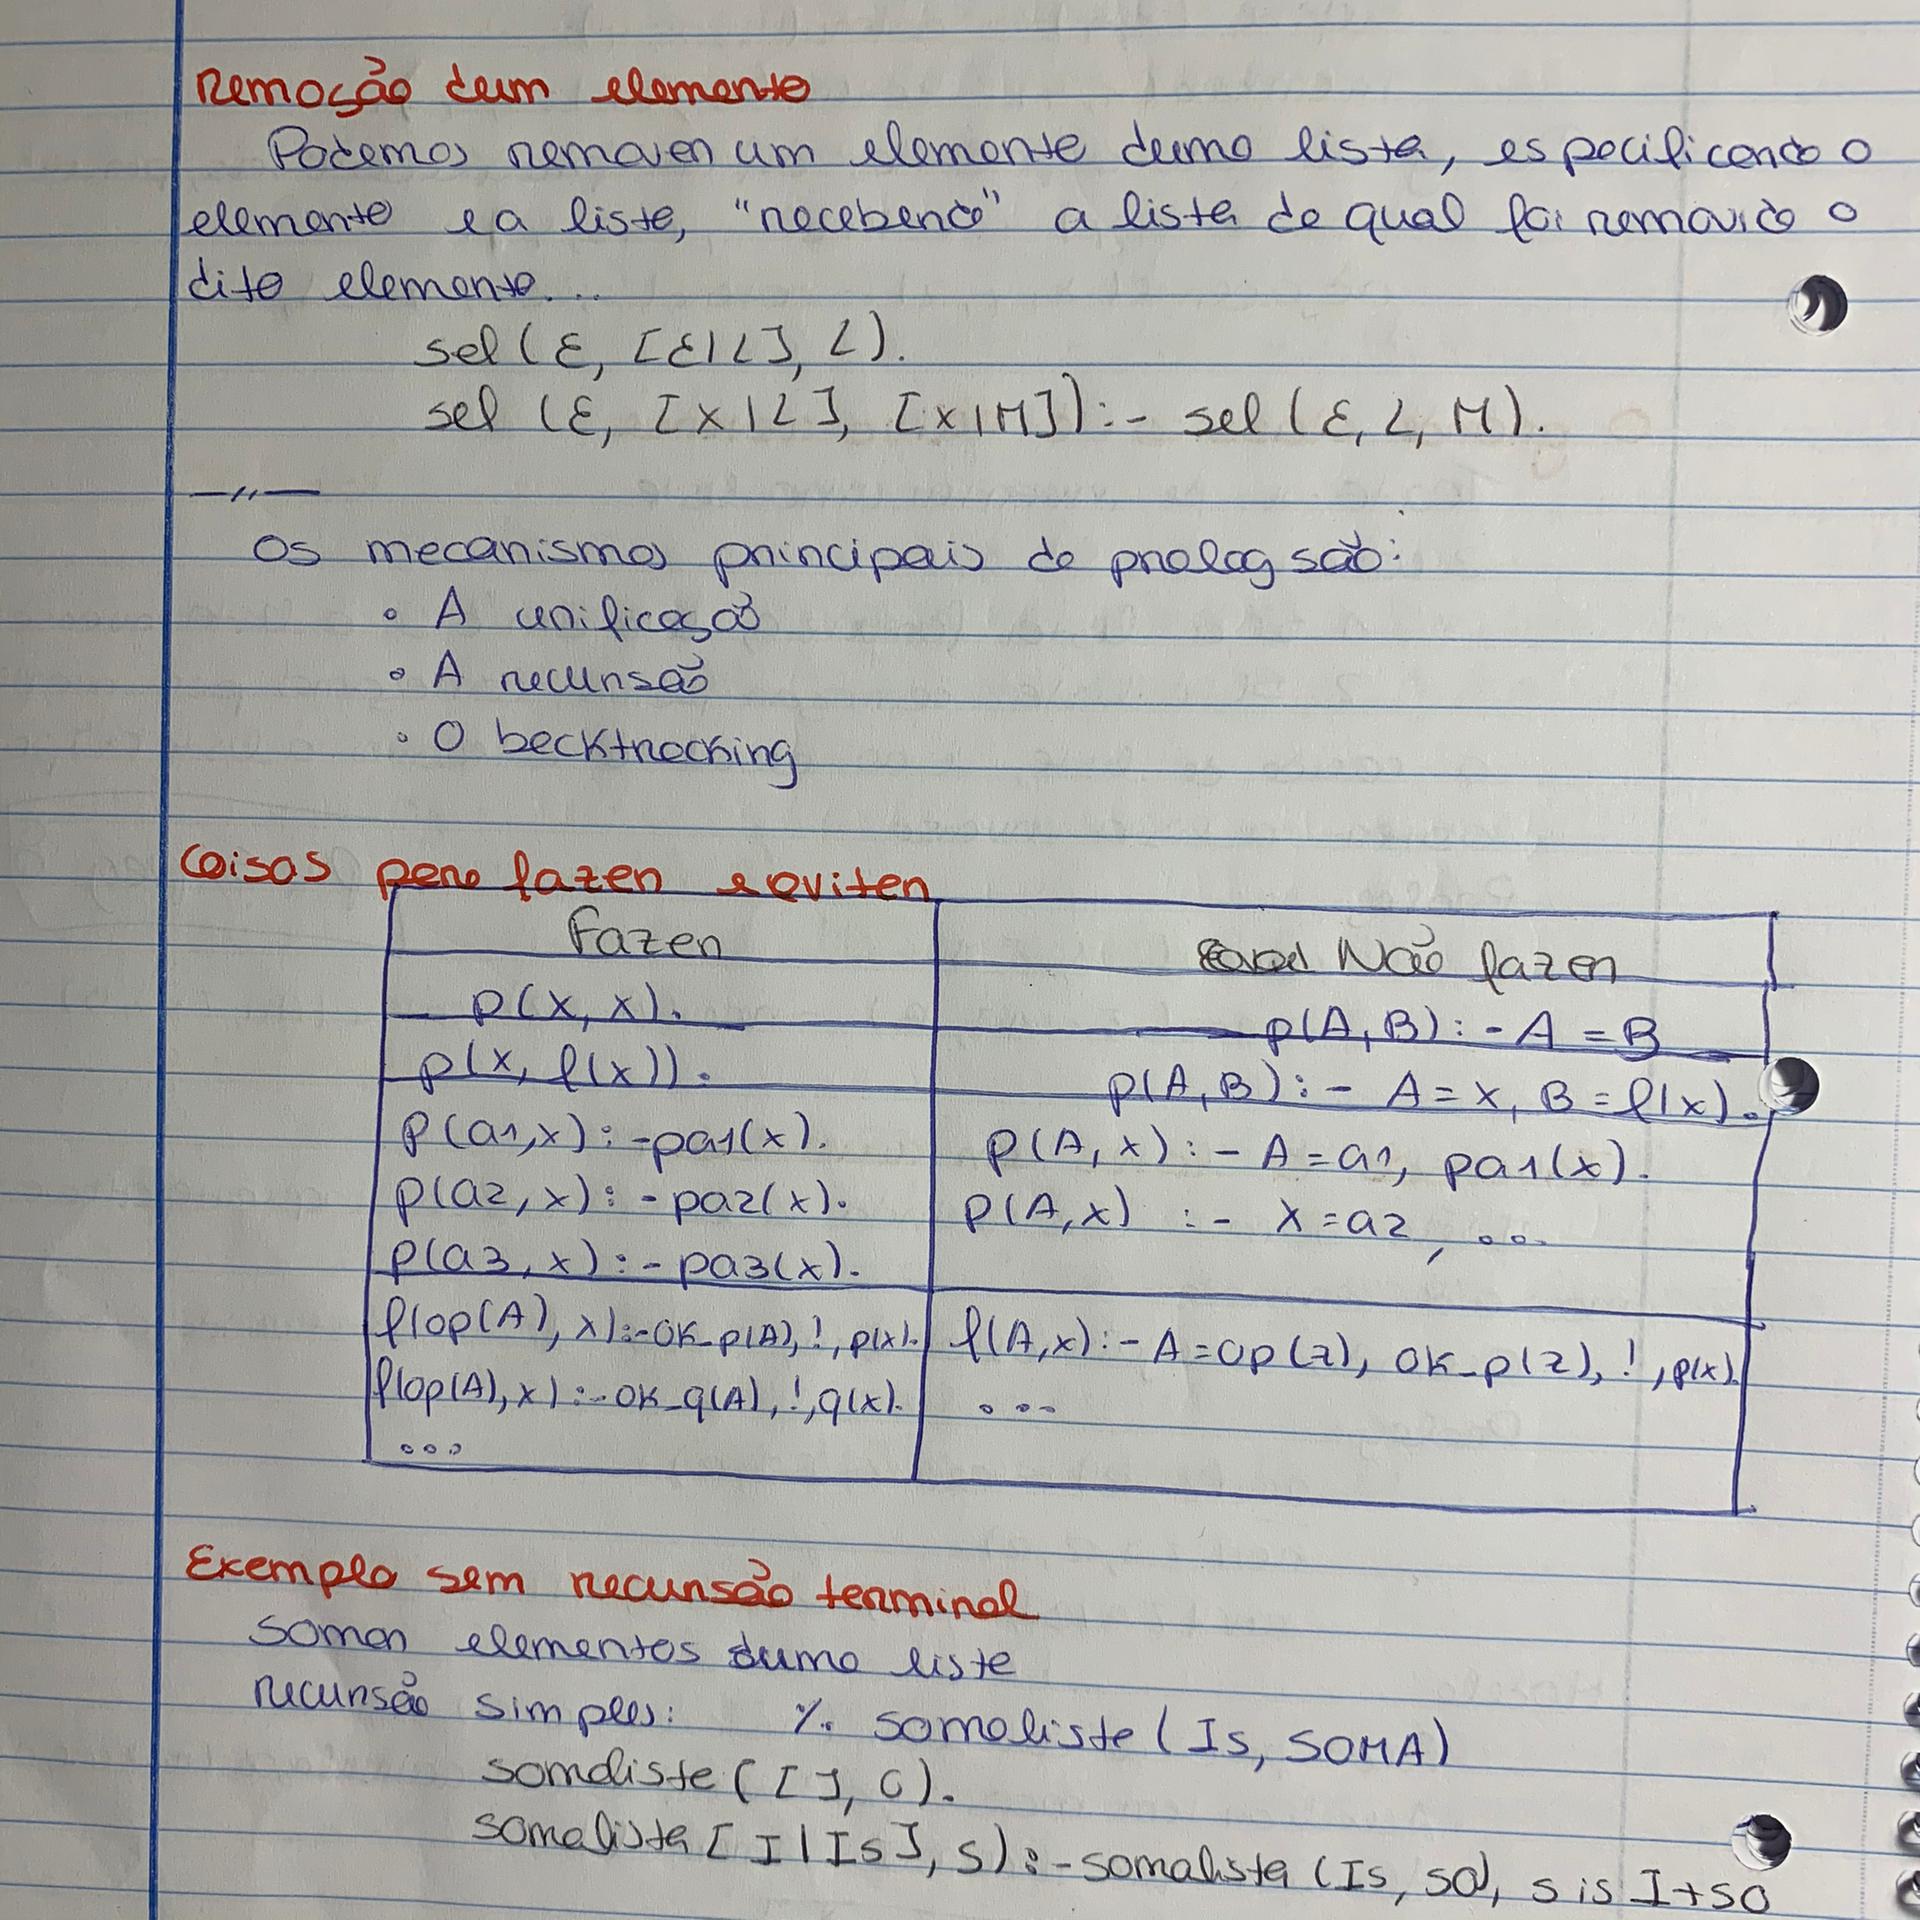 Remoção dum elemento
Podemos remover um elemento duma lista, especificando o
elemento e a lista, "recebendo" a lista da qual foi removido o
dito elemento...
sel(E, [E|L], L).
sel (E, [X|L], [X|M]):- sel(E, L, M).
—//—
Os mecanismos principais do prolog são:
• A unificação
• A recursão
• O backtracking
Coisas para fazer e evitar
Fazer
Não fazer
p(X, X).
p(A, B):- A = B
p(X, f(X)).
p(A, B):- A = X, B = f(X).
p(a1,X):-pa1(X).
p(A, X):- A = a1, pa1(X).
p(a2, X):-pa2(X).
p(A,X) :- X = a2, ...
p(a3, X):-pa3(X).
f(op(A), X):-OK_p(A),!,p(X).
f(A,X):- A=op(Z), OK_p(Z), !,p(X).
f(op(A),X):-OK_q(A),!,q(X).
...
...
Exemplo sem recursão terminal
Somar elementos duma lista
recursão simples: % somalista(Is, SOMA)
somalista([], 0).
somalista[I|Is], S):-somalista(Is, S0), S is I+S0